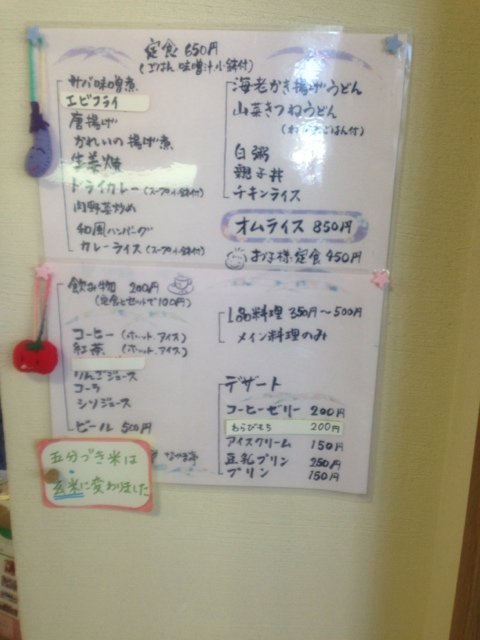 定食 650円
(ごはん 味噌汁 小鉢付)
サバ味噌煮
エビフライ
唐揚げ
かれいの揚げ煮
生姜焼
ドライカレー(スープ小鉢付)
肉野菜炒め
和風ハンバーグ
カレーライス(スープ小鉢付)
海老かき揚げうどん
山菜きつねうどん
白粥
親子丼
チキンライス
オムライス 850円
お子様定食 450円
飲み物 200円
(定食とセットで100円)
コーヒー (ホット.アイス)
紅茶 (ホット.アイス)
りんごジュース
コーラ
シソジュース
ビール 500円
1品料理 350円〜500円
メイン料理のみ
デザート
コーヒーゼリー 200円
わらびもち 200円
アイスクリーム 150円
豆乳プリン 250円
プリン 150円
五分づき米は
玄米に変わりました